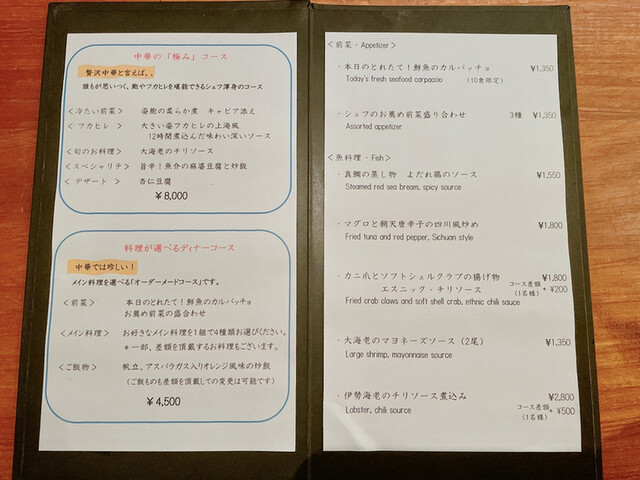 中華の「極み」コース
贅沢中華と言えば、、
誰もが思いつく、鮑やフカヒレを堪能できるシェフ渾身のコース
＜冷たい前菜＞ 姿鮑の柔らか煮 キャビア添え
＜フカヒレ＞ 大きい姿フカヒレの上海風
12時間煮込んだ味わい深いソース
＜旬のお料理＞ 大海老のチリソース
＜スペシャリテ＞ 旨辛！魚介の麻婆豆腐と炒飯
＜デザート＞ 杏仁豆腐
￥8,000
料理が選べるディナーコース
中華では珍しい！
メイン料理を選べる「オーダーメードコース」です。
＜前菜＞ 本日のとれたて！鮮魚のカルパッチョ
お薦め前菜の盛合わせ
＜メイン料理＞ お好きなメイン料理を1組で4種類お選びください。
＊一部、差額を頂戴するお料理もございます。
＜ご飯物＞ 帆立、アスパラガス入りオレンジ風味の炒飯
（ご飯ものも差額を頂戴しての変更は可能です）
￥4,500
＜前菜・Appetizer＞
・本日のとれたて！鮮魚のカルパッチョ ¥1,350
Today's fresh seafood carpaccio （10食限定）
・シェフのお薦め前菜盛り合わせ 3種 ¥1,350
Assorted appetizer
＜魚料理・Fish＞
・真鯛の蒸し物 よだれ鶏のソース ¥1,550
Steamed red sea bream, spicy source
・マグロと朝天唐辛子の四川風炒め ¥1,800
Fried tuna and red pepper, Sichuan style
・カニ爪とソフトシェルクラブの揚げ物 ¥1,800
エスニック・チリソース コース差額（1名様）＋¥200
Fried crab claws and soft shell crab, ethnic chili sauce
・大海老のマヨネーズソース（2尾） ¥1,350
Large shrimp, mayonnaise source
・伊勢海老のチリソース煮込み ¥2,800
Lobster, chili source コース差額（1名様）＋¥500